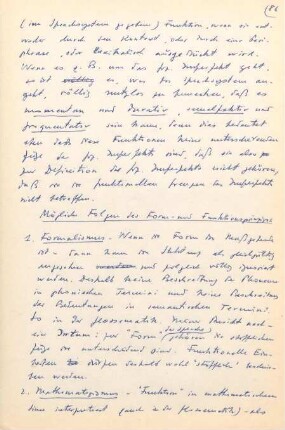 (86
(im Sprachsystem gegebene) Funktion, wenn sie ent-
weder durch den Kontext, oder durch eine Peri-
phrase, oder lexikalisch ausgedrückt wird.
Wenn es z. B. um das frz. Imperfekt geht,
so ist es, was frz. Sprachsystem an-
geht, völlig nutzlos zu bemerken, daß es
momentan und durativ, und
fragmentativ sein kann, denn dies bedeutet
eben daß diese Funktionen keine unterscheidenden
Züge des frz. Imperfekts sind, daß sie also
zur Definition des frz. Imperfekts nicht gehören,
daß sie im funktionellen frz. Imperfekt
nicht betreffen.
Mögliche Folgen des Form- und Funktionsprinzips
1. Formalismus - Wenn die Form das Maßgebende
ist - dann kann die Substanz als gleichgültig
angesehen und folglich völlig ignoriert
werden. Deshalb keine Beschreibung der Phoneme
in phonischen Termini und keine Beschreibung
der Bedeutungen in semantischen Termini.
So in der Glossematik. Keine Einsicht noch
ein Irrtum: zur "Form" gehören die stofflichen
Züge die unterscheidend sind. Funktionelle Ein-
heiten dürfen deshalb wohl "stofflich"
werden.
2. Mathematizismus - "Funktion" im mathematischen
Sinne interpretiert (auch in der Glossematik) - als